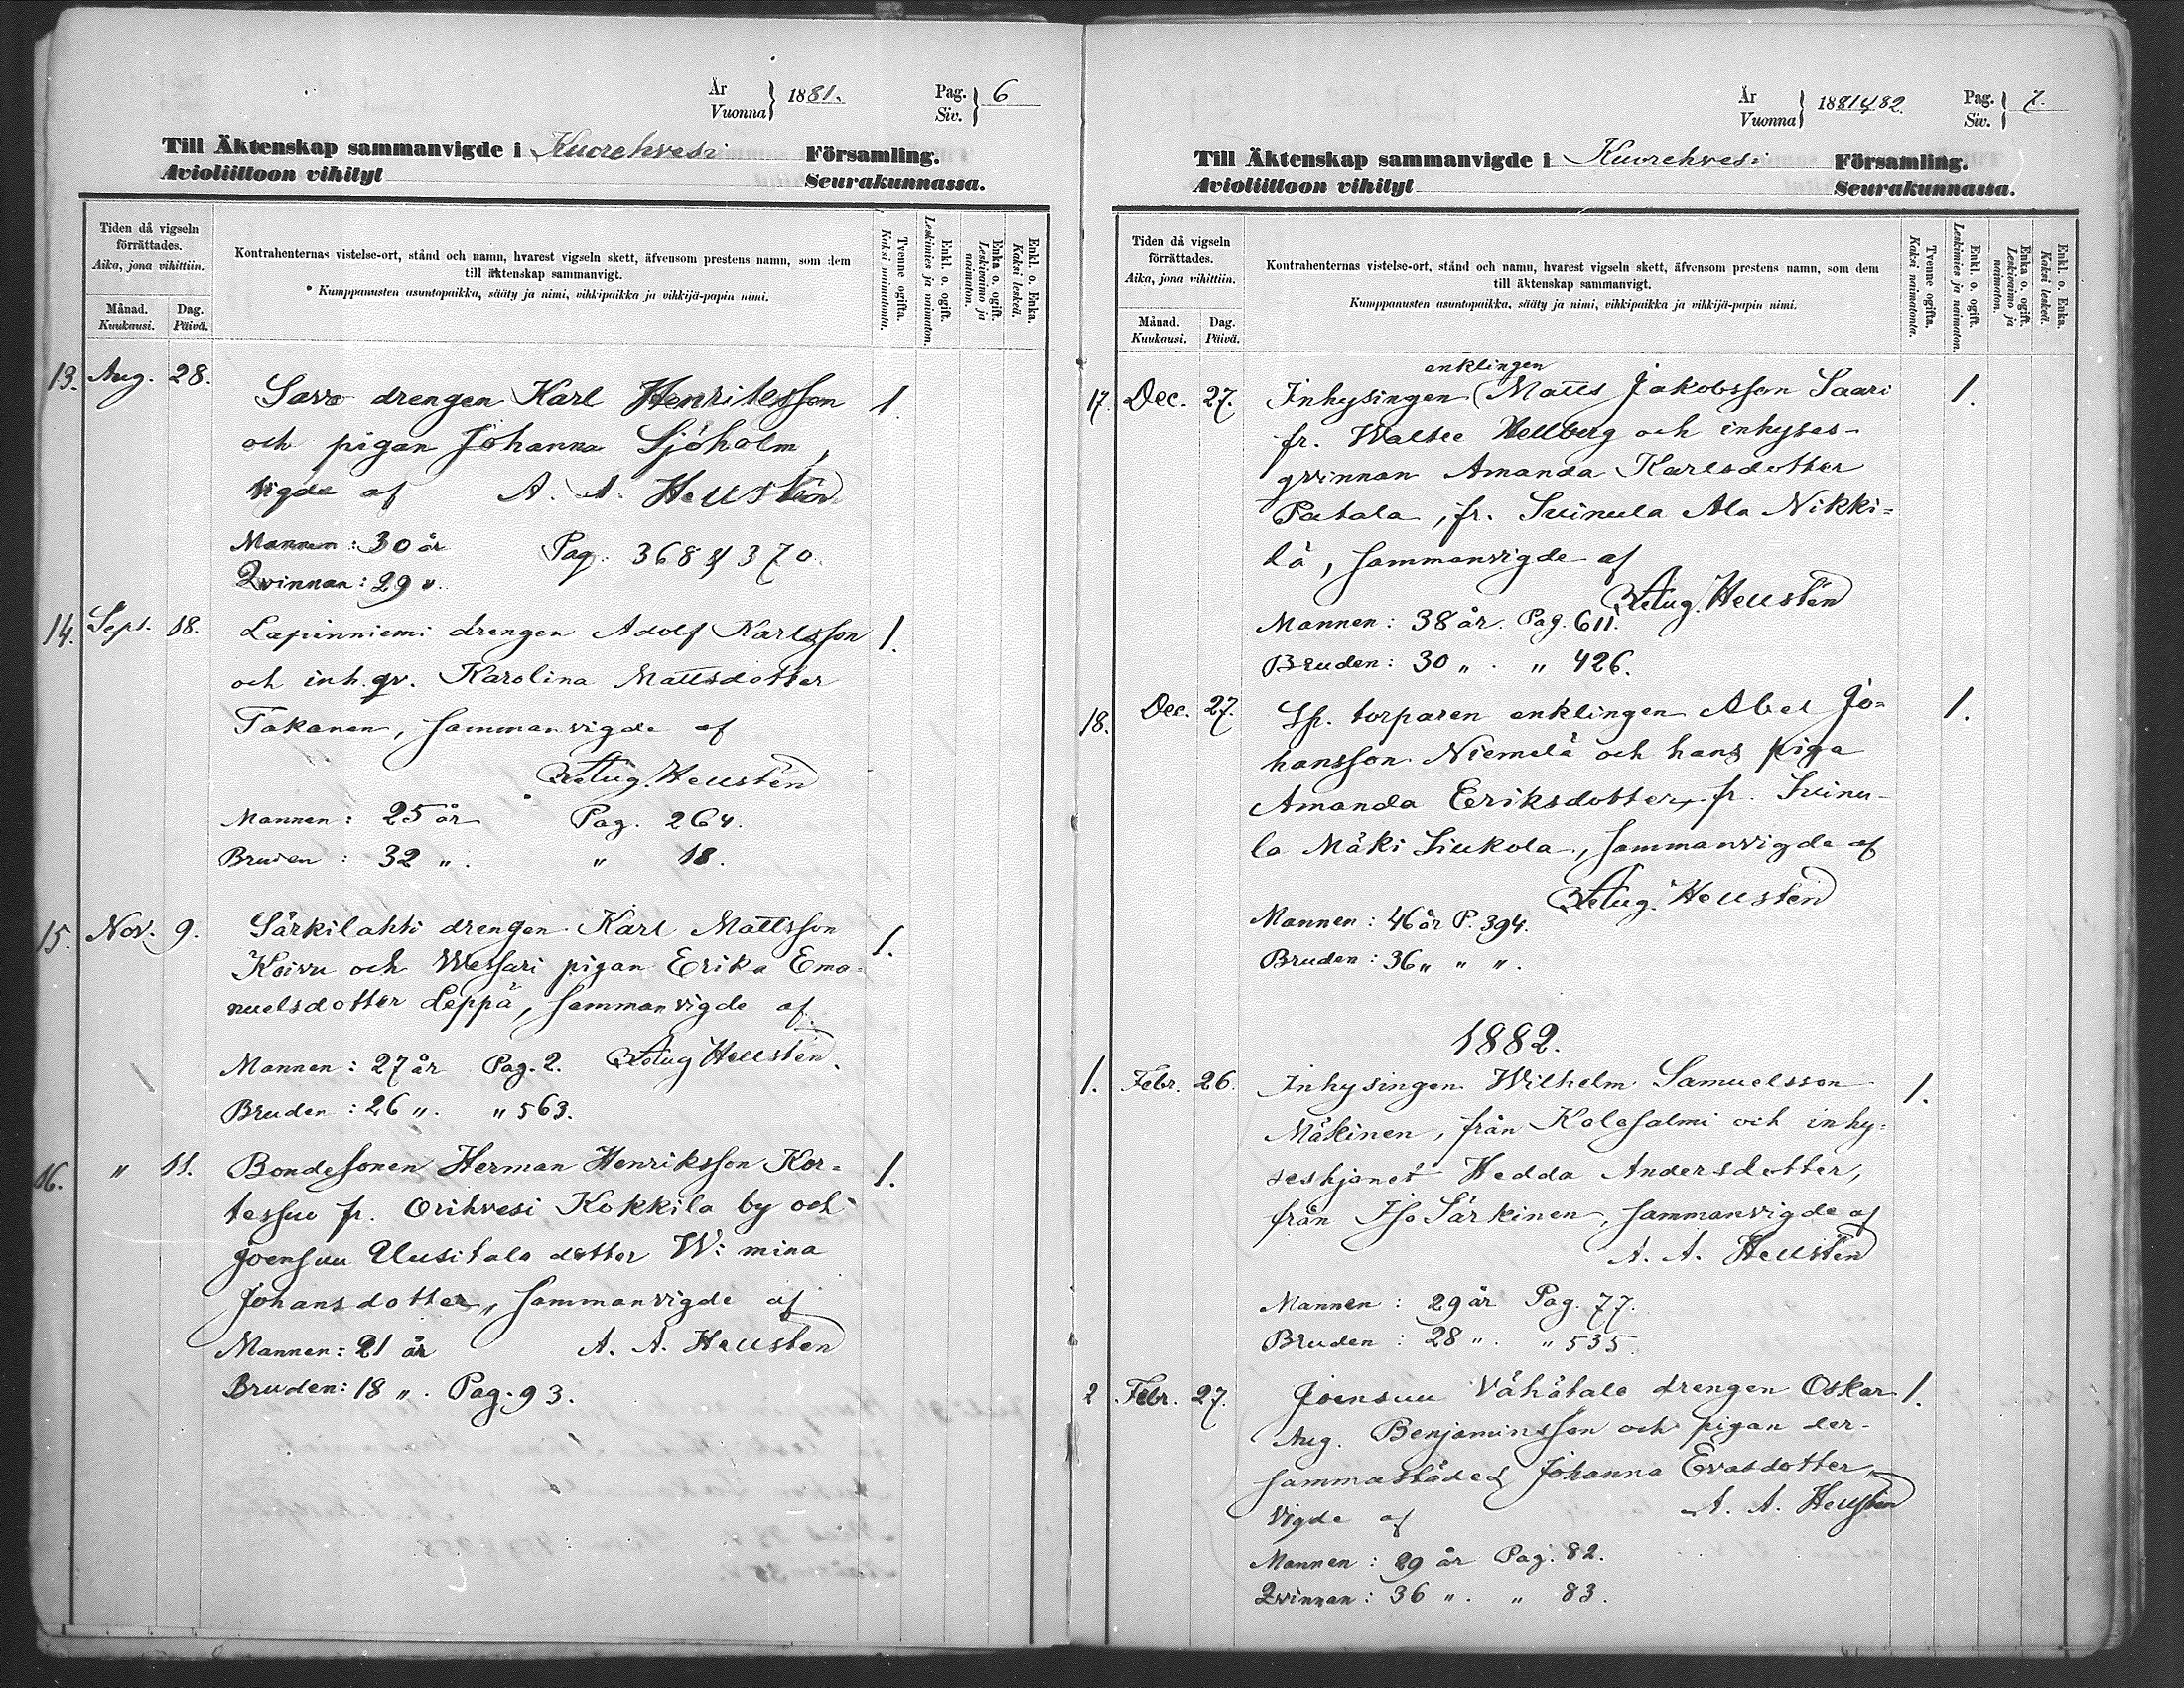 År
Vuonna } 1881.
Pag.
Siv. } 6
Till Äktenskap sammanvigde i Kuorehvesi Församling.
Avioliittoon vihityt Seurakunnassa.
Tiden då vigseln
förrättades.
Aika, jona vihittiin.
Månad.
Kuukausi.
Dag.
Päivä.
Kontrahenternas vistelse-ort, stånd och namn, hvarest vigseln skett, äfvensom prestens namn, som dem
till äktenskap sammanvigt.
Kumppanusten asuntopaikka, sääty ja nimi, vihkipaikka ja vihkijä-papin nimi.
Tvenne ogifta.
Kaksi naimatonta.
Enkl. o. ogift.
Leskimies ja naimaton.
Enka o. ogift.
Leskivaimo ja
naimaton.
Enkl. o. Enka.
Kaksi leskeä.
13. Aug. 28. Savo drengen Karl Henriksson 1.
och pigan Johanna Sjöholm,
vigde af A. A. Hellstén
Mannen: 30 år Pag. 368 & 370.
Qvinnan: 29 ".
14. Sept. 18. Lapinniemi drengen Adolf Karlsson 1.
och inh. qv. Karolina Mattsdotter
Takanen, sammanvigde af
Aug. Hellstén
Mannen: 25 år Pag. 264.
Bruden: 32 ". " 18.
15. Nov. 9. Särkilahti drengen Karl Mattsson 1.
Koivu och Wessari pigan Erika Ema-
nuelsdotter Leppä, sammanvigde af
Mannen: 27 år Pag. 2. Aug Hellstén.
Bruden: 26 ". " 563.
16. " 11. Bondesonen Herman Henriksson Kor- 1.
tessuo fr. Orihvesi Kokkila by och
Joensuu Uusitalo dotter W:mina
Johansdotter, sammanvigde af
Mannen: 21 år A. A. Hellstén
Bruden: 18 ". Pag. 93.
År
Vuonna } 1881 & 82.
Pag.
Siv. } 7.
Till Äktenskap sammanvigde i Kuorehvesi Församling.
Avioliittoon vihityt Seurakunnassa.
Tiden då vigseln
förrättades.
Aika, jona vihittiin.
Månad.
Kuukausi.
Dag.
Päivä.
Kontrahenternas vistelse-ort, stånd och namn, hvarest vigseln skett, äfvensom prestens namn, som dem
till äktenskap sammanvigt.
Kumppanusten asuntopaikka, sääty ja nimi, vihkipaikka ja vihkijä-papin nimi.
Tvenne ogifta.
Kaksi naimatonta.
Enkl. o. ogift.
Leskimies ja naimaton.
Enka o. ogift.
Leskivaimo ja
naimaton.
Enkl. o. Enka.
Kaksi leskeä.
enklingen
17. Dec. 27. Inhysingen (Matts Jakobsson Saari 1.
fr. Waltee Hellberg och inhyses-
qvinnan Amanda Karlsdotter
Patala, fr. Suinula Ala Nikki-
lä, sammanvigde af
Aug. Hellstén
Mannen: 38 år. Pag. 611.
Bruden: 30 ". " 426.
18. Dec. 27. Sp. torparen enklingen Abel Jo- 1.
hansson Niemelä och hans piga
Amanda Eeriksdotter, fr. Suinu-
la Mäki Liukola, sammanvigde af
Aug. Hellstén
Mannen: 46 år P. 394.
Bruden: 36 " " ".
1882.
1. Febr. 26. Inhysingen Wilhelm Samuelsson 1.
Mäkinen, från Kolesalmi och inhy-
seshjonet Hedda Andersdotter,
från Iso Särkinen, sammanvigde af
A. A. Hellstén
Mannen: 29 år Pag. 77.
Bruden: 28 ". " 535.
2 Febr. 27. Joensuu Vähätalo drengen Oskar 1.
Aug. Benjaminsson och pigan der-
sammastädes Johanna Evasdotter,
vigde af A. A. Hellstén
Mannen: 29 år Pag. 82.
Qvinnan: 36 ". " 83.